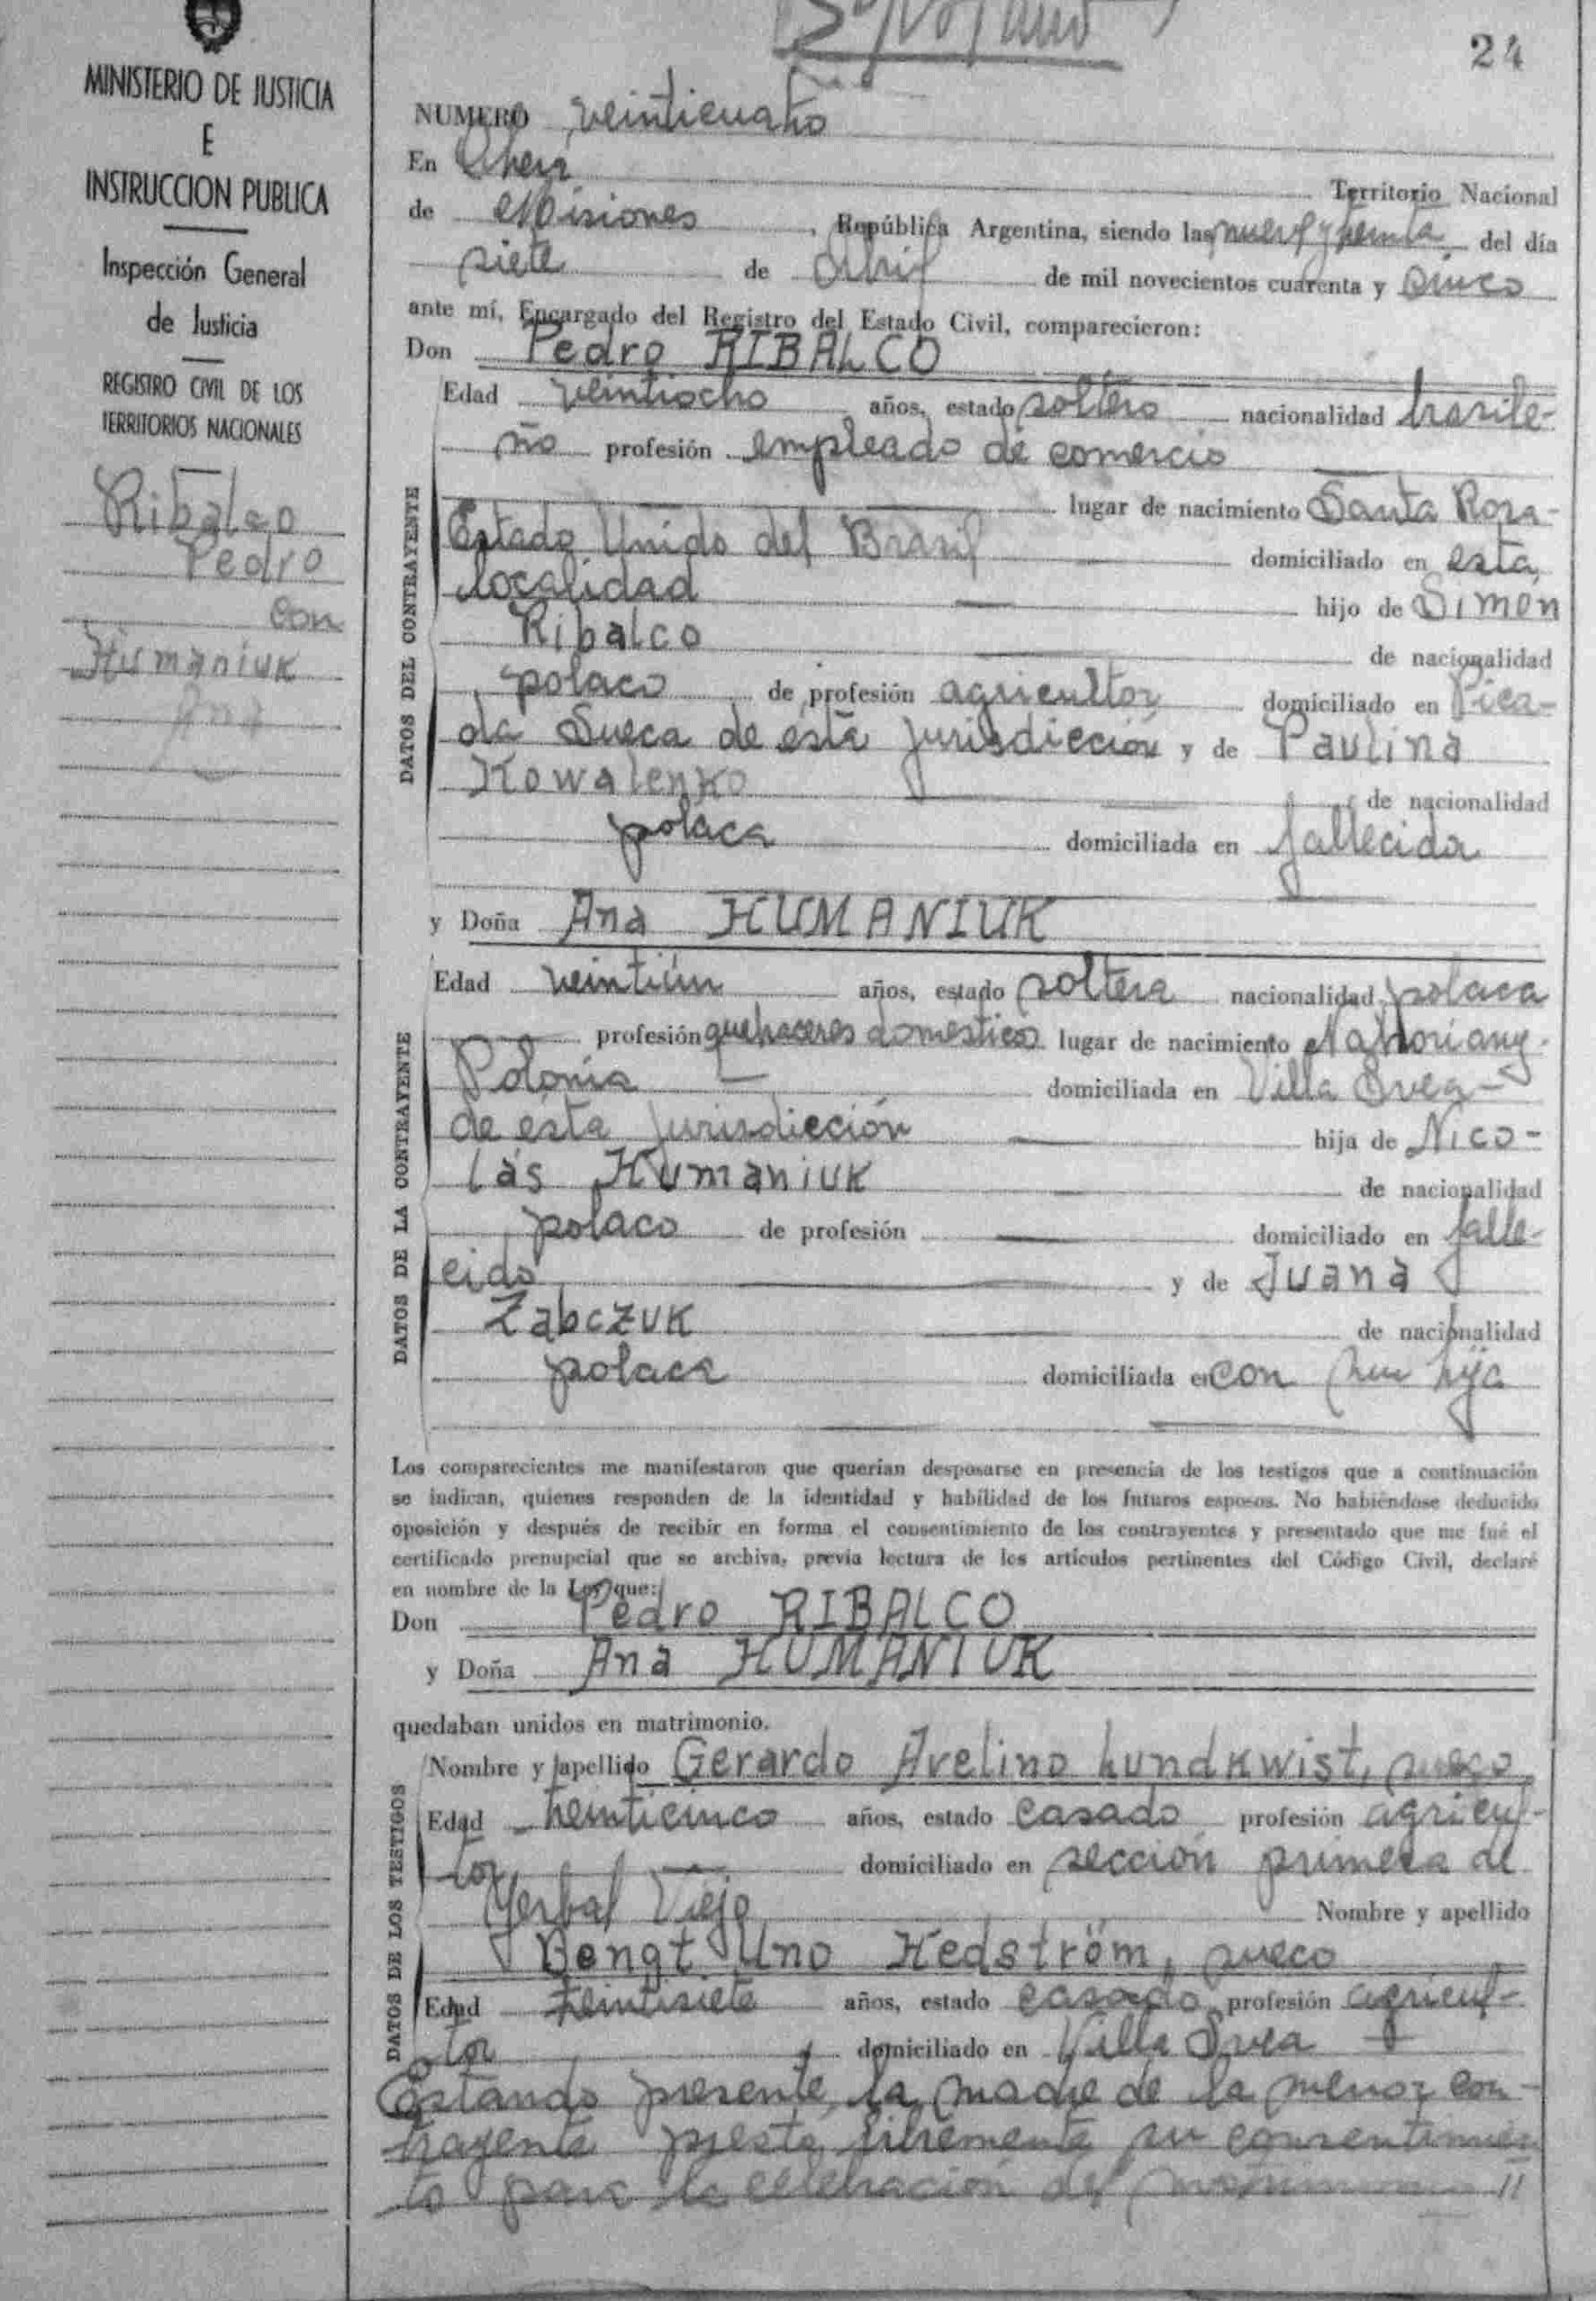 24
MINISTERIO DE JUSTICIA
E
INSTRUCCION PUBLICA
Inspección General
de Justicia
REGISTRO CIVIL DE LOS
TERRITORIOS NACIONALES
Ribalco
Pedro
con
Humaniuk
Ana
NUMERO veinticuatro
En Oberá Territorio Nacional
de Misiones, República Argentina, siendo las nueve y treinta del día
siete de Abril de mil novecientos cuarenta y cinco
ante mí, Encargado del Registro del Estado Civil, comparecieron:
Don Pedro RIBALCO
DATOS DEL CONTRAYENTE
Edad veintiocho años, estado soltero nacionalidad brasile-
ño profesión empleado de comercio
lugar de nacimiento Santa Rosa-
Estado Unido del Brasil domiciliado en esta
localidad hijo de Simon
Ribalco de nacionalidad
polaco de profesión agricultor domiciliado en Pica-
da Sueca de ésta jurisdicción y de Paulina
Kowalenko de nacionalidad
polaca domiciliada en fallecida
y Doña Ana HUMANIUK
DATOS DE LA CONTRAYENTE
Edad veintiún años, estado soltera nacionalidad polaca
profesión quehaceres domestico lugar de nacimiento
Polonia domiciliada en Villa Svea-
de ésta jurisdicción hija de Nico-
lás Humaniuk de nacionalidad
polaco de profesión domiciliado en falle-
cido y de Juana
Zabczuk de nacionalidad
polaca domiciliada en con su hija
Los comparecientes me manifestaron que querían desposarse en presencia de los testigos que a continuación
se indican, quienes responden de la identidad y habilidad de los futuros esposos. No habiéndose deducido
oposición y después de recibir en forma el consentimiento de los contrayentes y presentado que me fué el
certificado prenupcial que se archiva, previa lectura de los artículos pertinentes del Código Civil, declaré
en nombre de la Ley que:
Don Pedro RIBALCO
y Doña Ana HUMANIUK
quedaban unidos en matrimonio.
DATOS DE LOS TESTIGOS
Nombre y apellido Gerardo Avelino Lundkwist, sueco
Edad treinticinco años, estado casado profesión agricul-
tor domiciliado en sección primera de
Yerbal Viejo Nombre y apellido
Bengt Uno Hedström, sueco
Edad treintisiete años, estado casado profesión agricul-
tor domiciliado en Villa Svea
Estando presente la madre de la menor con-
trayente presta libremente su consentimien
to para la celebración del matrimonio //